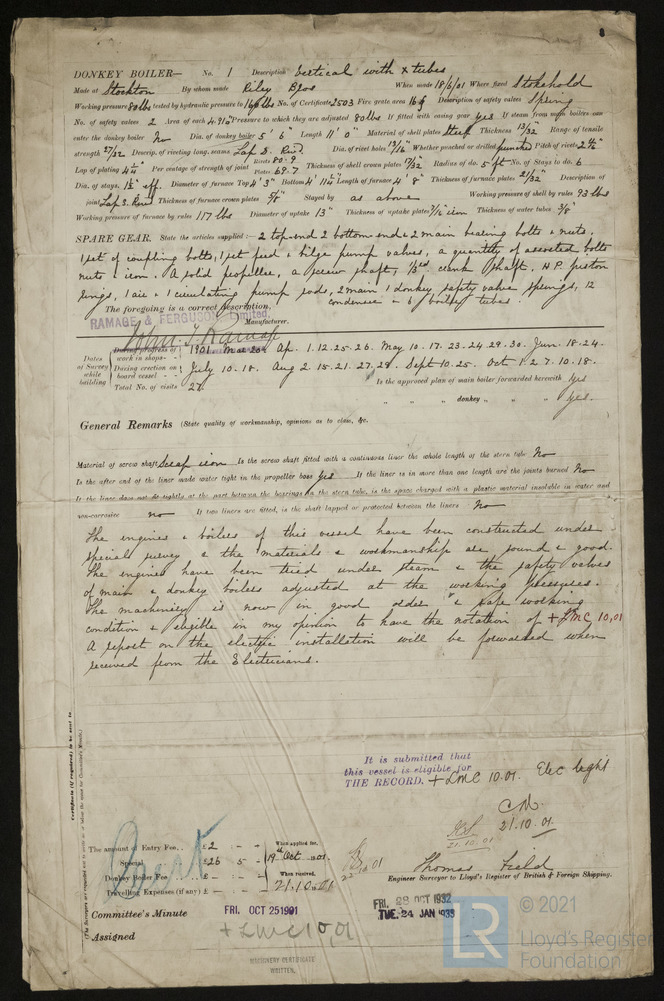 8
DONKEY BOILER— No. 1 Description Vertical with x tubes
Made at Stockton By whom made Riley Bros When made 18/6/01 Where fixed Stokehold
Working pressure 80 lbs tested by hydraulic pressure to 160 lbs No. of Certificate 2503 Fire grate area Description of safety valves Spring
No. of safety valves 2 Area of each 4.91 Pressure to which they are adjusted 80 lbs If fitted with easing gear yes If steam from main boilers can
enter the donkey boiler No Dia. of donkey boiler 5' 6" Length 11' 0" Material of shell plates Steel Thickness 13/32 Range of tensile
strength 27/32 Descrip. of riveting long. seams Lap D. Rivd. Dia. of rivet holes 13/16 Whether punched or drilled punched Pitch of rivets
Lap of plating Per centage of strength of joint Rivets 80.9 Plates 69.7 Thickness of shell crown plates Radius of do. 5 ft No. of Stays to do. 6
Dia. of stays. Diameter of furnace Top 4' 3" Bottom Length of furnace 4' 8" Thickness of furnace plates 21/32 Description of
joint Lap S. Rivd Thickness of furnace crown plates 5/8" Stayed by as above Working pressure of shell by rules 93 lbs
Working pressure of furnace by rules 117 lbs Diameter of uptake 13" Thickness of uptake plates iron Thickness of water tubes 3/8"
SPARE GEAR. State the articles supplied:— 2 top end 2 bottom end & 2 main bearing bolts & nuts.
1 set of coupling bolts, 1 set feed & bilge pump valves, a quantity of assorted bolts
nuts & iron. A solid propeller, a screw shaft, crank shaft, H.P. piston
rings, 1 air & 1 circulating pump rods, 2 main 1 donkey safety valve springs, 12
condenser & 6 boiler tubes.
The foregoing is a correct description,
RAMAGE & FERGUSON Limited,
John T. Ramage Manufacturer.
Dates of Survey while building
During progress of work in shops - - 1901 Mar 20 Ap. 1.12.25.26. May 10.17.23.24.29.30. Jun. 18.24.
During erection on board vessel - - - July 10.18. Aug 2.15.21.27.29. Sept 10.25. Oct 1.2.7.10.18.
Total No. of visits 27. Is the approved plan of main boiler forwarded herewith Yes
" " " donkey " " " Yes.
General Remarks (State quality of workmanship, opinions as to class, &c.
Material of screw shaft Scrap iron Is the screw shaft fitted with a continuous liner the whole length of the stern tube No
Is the after end of the liner made water tight in the propeller boss yes If the liner is in more than one length are the joints burned No
If the liner does not fit tightly at the part between the bearings in the stern tube, is the space charged with a plastic material insoluble in water and
non-corrosive no If two liners are fitted, is the shaft lapped or protected between the liners No
The engines & boilers of this vessel have been constructed under
special survey & the materials & workmanship are sound & good.
The engines have been tried under steam & the safety valves
of main & donkey boilers adjusted at the working pressures.
The machinery is now in good order & safe working
condition & eligible in my opinion to have the notation of + LMC 10,01
A report on the electric installation will be forwarded when
received from the Electricians.
Certificate (if required) to be sent to
It is submitted that
this vessel is eligible for
THE RECORD. + LMC 10.01. Elec light
21.10.01.
21.10.01
The amount of Entry Fee . . £ 2 - - When applied for,
Special . . . £ 26 5 - 19th Oct 1901
Donkey Boiler Fee . . . £ - - - When received,
Travelling Expenses (if any) £ - - - 21.10.01
Thomas Field
Engineer Surveyor to Lloyd's Register of British & Foreign Shipping.
Committee's Minute FRI. OCT 25 1901
FRI. 28 OCT 1932
TUE. 24 JAN 1933
Assigned + LMC 10,01
MACHINERY CERTIFICATE
WRITTEN.
LR © 2021
Lloyd's Register
Foundation